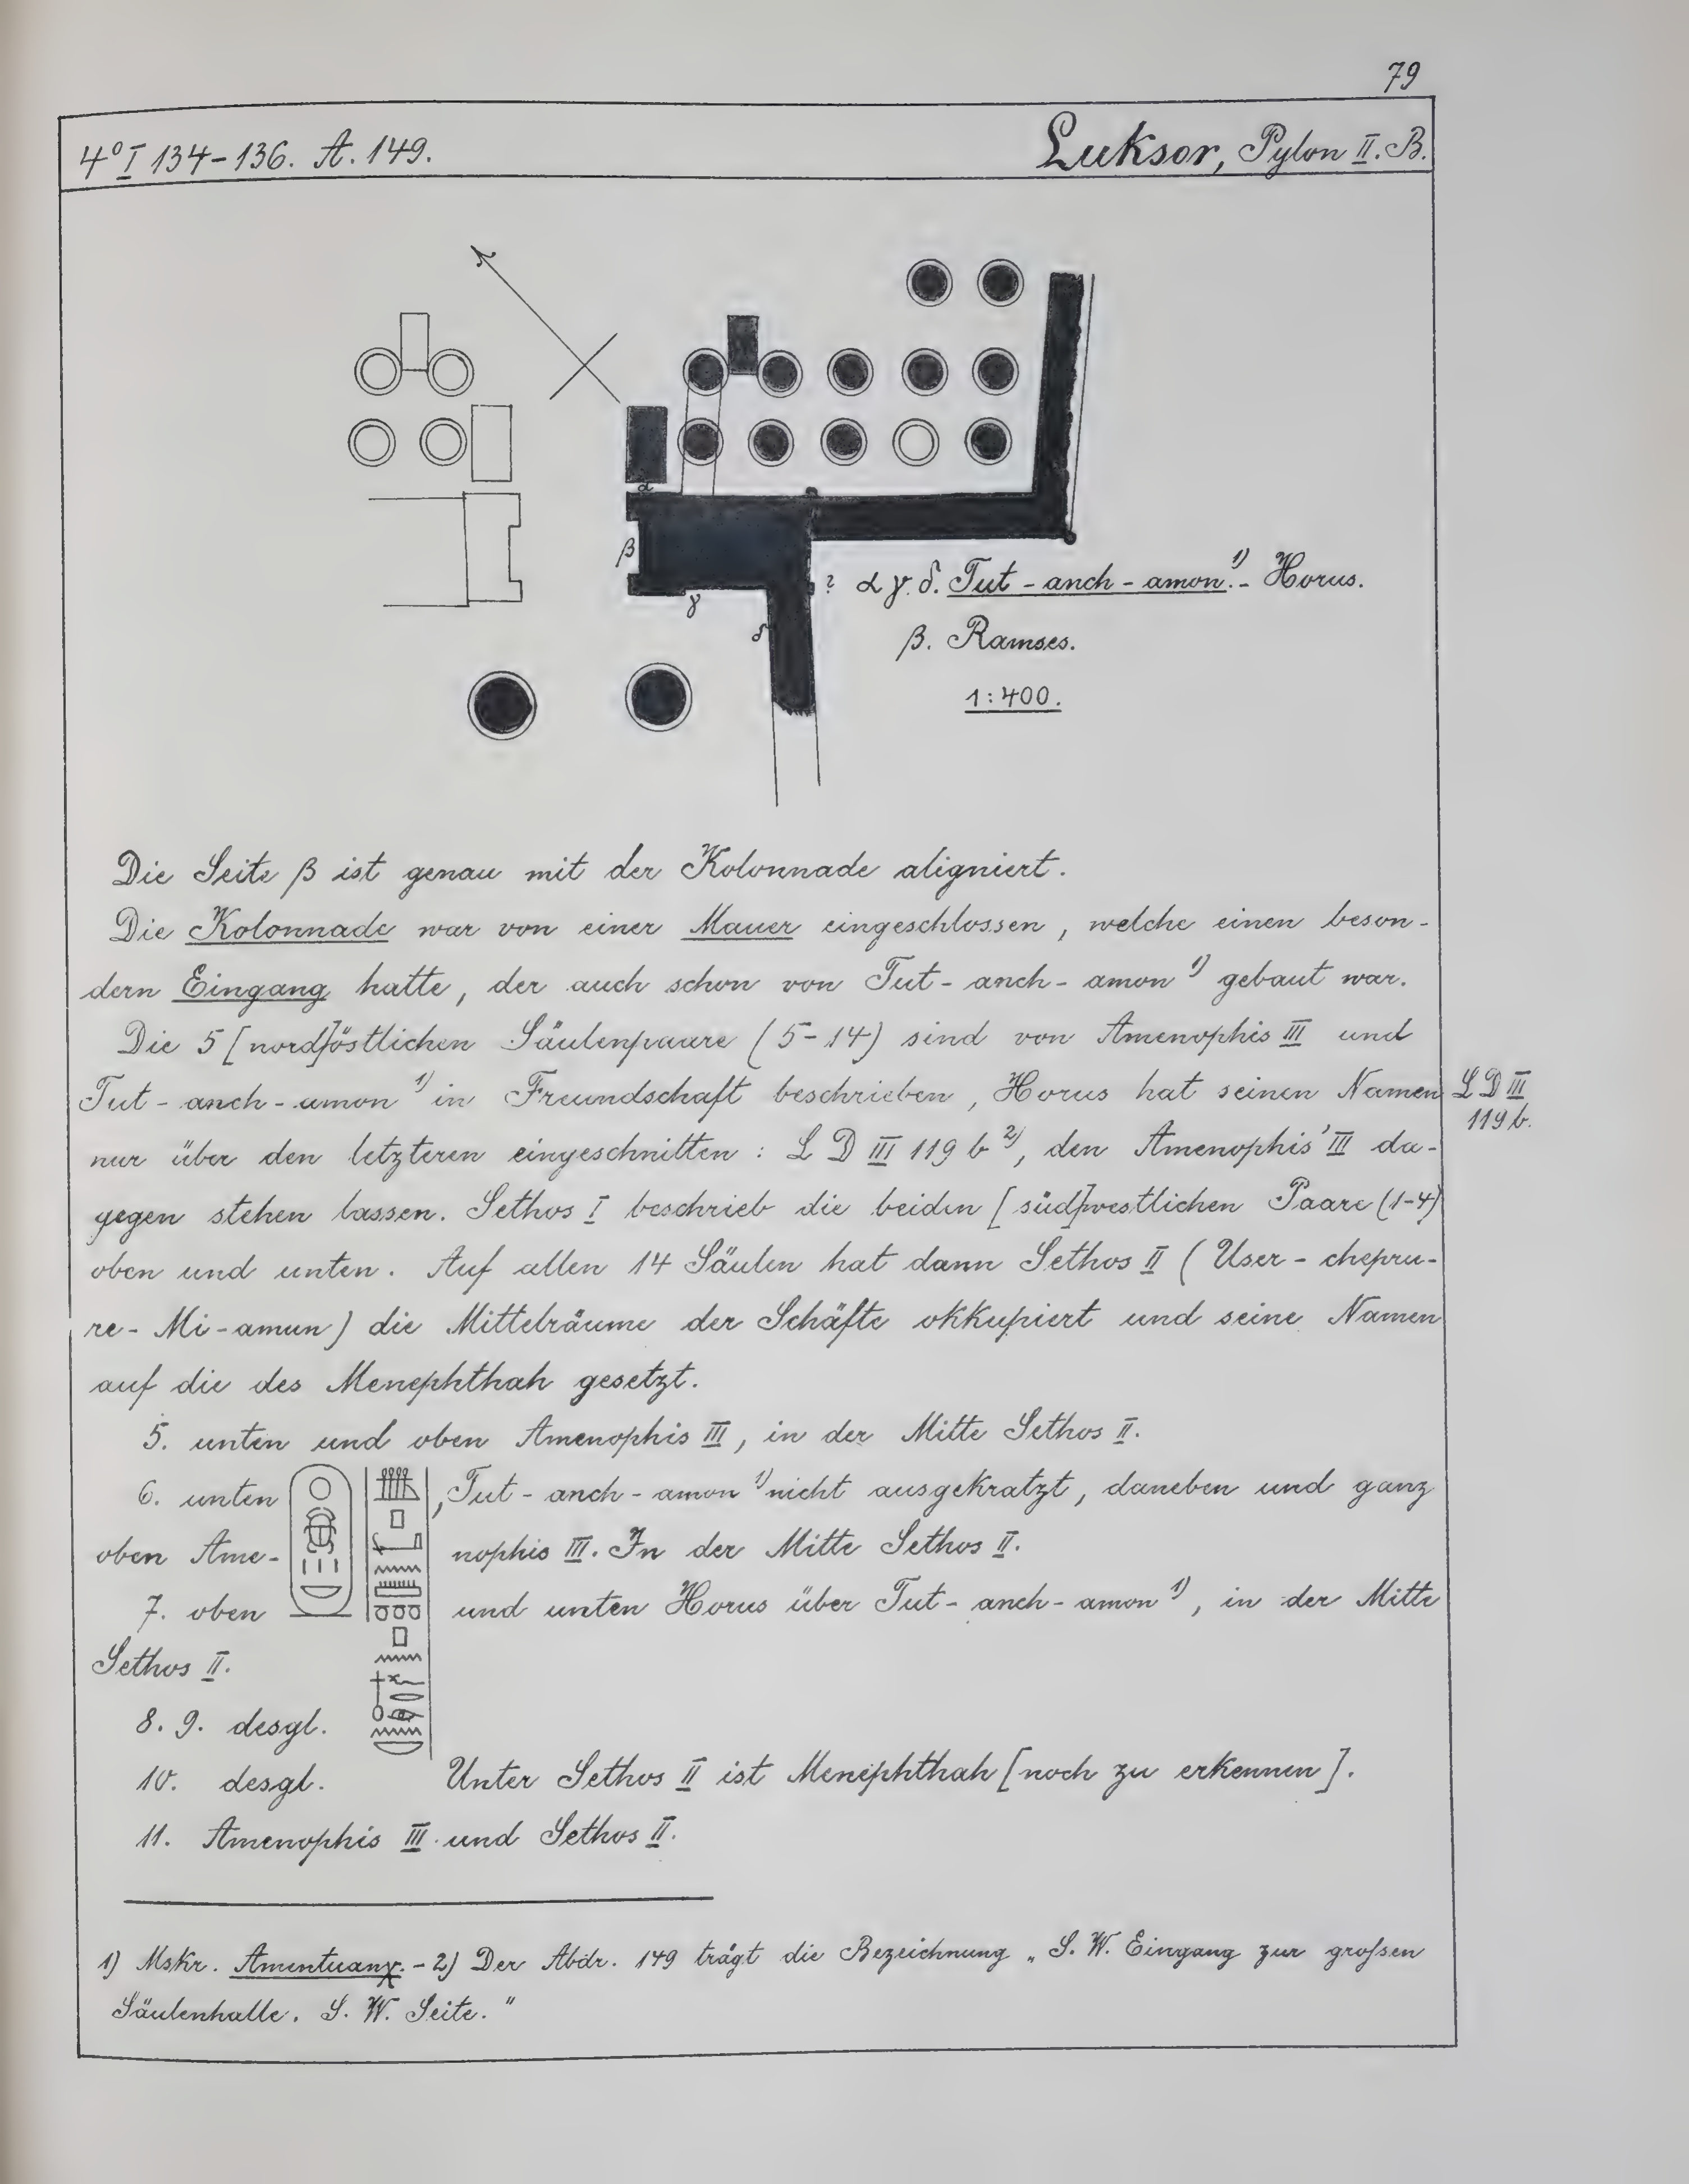 79
4° I 134-136. A. 149.
Luksor, Pylon II. B.
α
β
γ
δ
? α γ. δ. Tut-anch-amon.¹⁾- Horus.
β. Ramses.
1:400.
Die Seite β ist genau mit der Kolonnade aligniert.
Die Kolonnade war von einer Mauer eingeschlossen, welche einen beson-
dern Eingang hatte, der auch schon von Tut-anch-amon ¹⁾ gebaut war.
Die 5 [nord]östlichen Säulenpaare (5-14) sind von Amenophis III und
Tut-anch-amon ¹⁾ in Freundschaft beschrieben, Horus hat seinen Namen
nur über den letzteren eingeschnitten: L D III 119 b ²⁾, den Amenophis' III da-
gegen stehen lassen. Sethos I beschrieb die beiden [süd]westlichen Paare (1-4)
oben und unten. Auf allen 14 Säulen hat dann Sethos II (User-chepru-
re-Mi-amun) die Mittelräume der Schäfte okkupiert und seine Namen
auf die des Menephthah gesetzt.
L D III
119 b.
5. unten und oben Amenophis III, in der Mitte Sethos II.
6. unten , Tut-anch-amon ¹⁾ nicht ausgekratzt, daneben und ganz
oben Ame- nophis III. In der Mitte Sethos II.
7. oben und unten Horus über Tut-anch-amon ¹⁾, in der Mitte
Sethos II.
8. 9. desgl.
10. desgl. Unter Sethos II ist Menephthah [noch zu erkennen].
11. Amenophis III und Sethos II.
1) Mskr. Amentuanχ. - 2) Der Abdr. 149 trägt die Bezeichnung „S. W. Eingang zur großen
Säulenhalle. S. W. Seite."